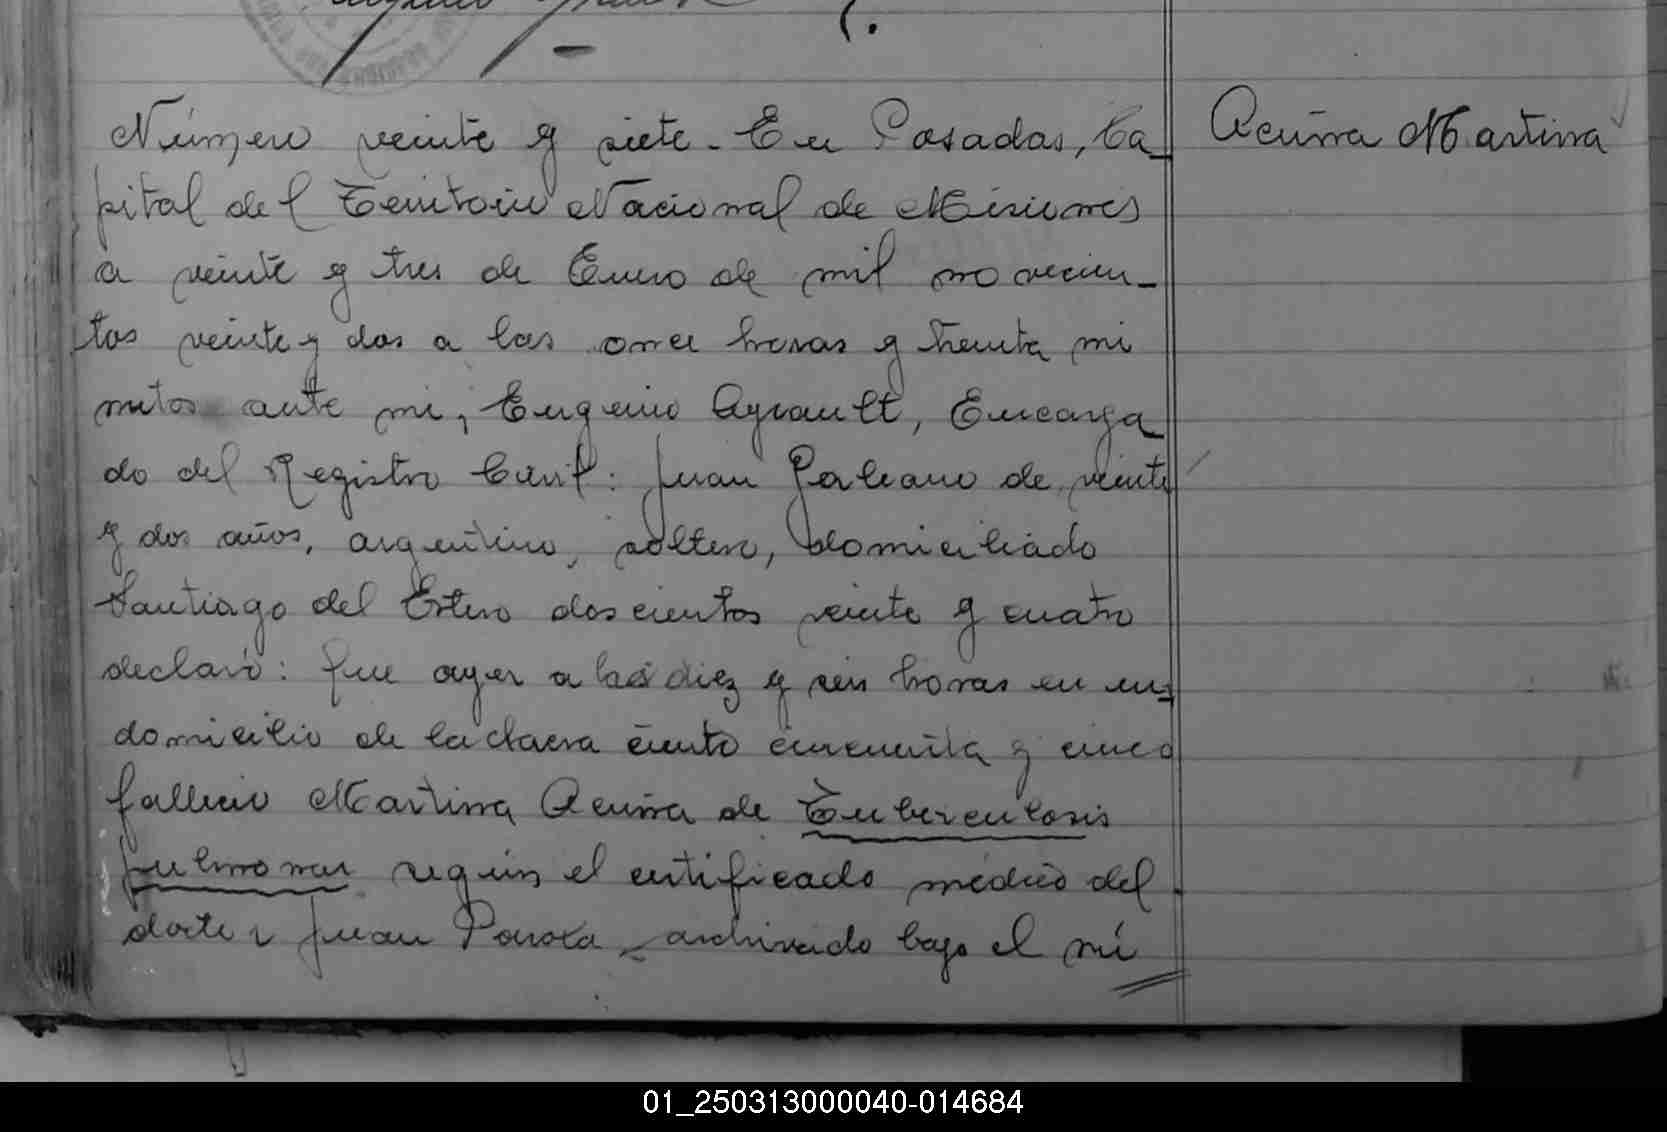 Número veinte y siete - En Posadas, Ca-
Acuña Martina
pital del Territorio Nacional de Misiones
a veinte y tres de Enero de mil novecien-
tos veinte y dos a las once horas y treinta mi
nutos ante mi, Eugenio Ayrault, Encarga
do del Registro Civil: Juan Galeano de veinte
y dos años, argentino, soltero, domiciliado
Santiago del Estero doscientos veinte y cuatro
declaró: Que ayer a las diez y seis horas en su
domicilio de la chacra ciento cincuenta y cinco
falleció Martina Acuña de Tuberculosis
pulmonar según el certificado médico del
doctor Juan archivado bajo el nú
01_250313000040-014684